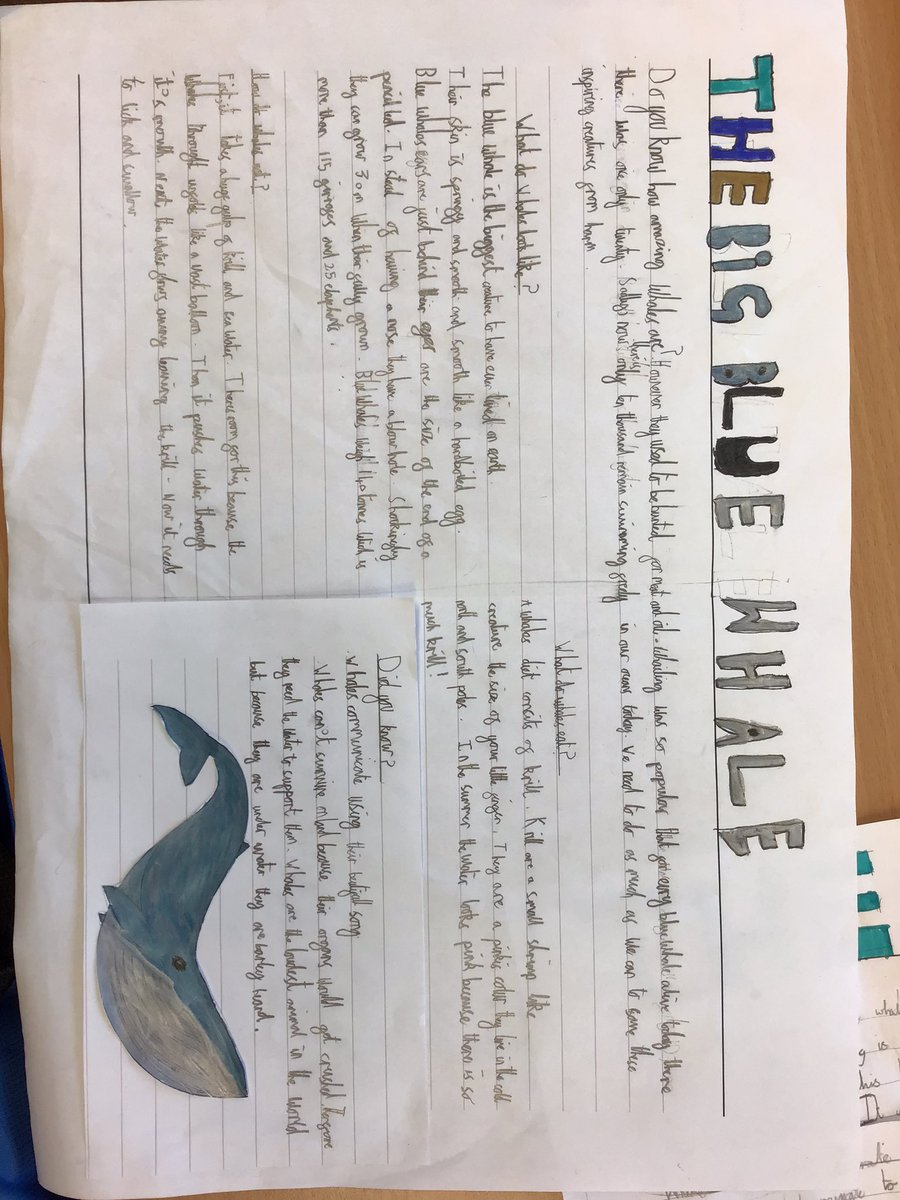 THE BIG BLUE WHALE
Do you know how amazing Whales are? However they used to be hunted for meat and oil. Whaling was so popular that for every blue whale alive today there
there were once twenty. Sadly now there is only ten thousand remain swimming freely in our ocean today. We need to do as much as we can to save these
inspiring creatures from harm.
What do whales look like?
The blue whale is the biggest creature to have ever lived on earth.
Their skin is springy and smooth and smooth like a hardboiled egg.
Blue whales ears are just behind their eyes are the size of the end of a
pencil lid. In stead of having a nose they have a blow hole. Shockingly
they can grow 30m when their fully grown. Blue whales weigh 140 tonnes which is
more than 115 giraffes and 25 elephants.
How do whales eat?
First, it takes a huge gulp of krill and sea water. Theres room for this because the
whales throught expands like a vast balloon. Then it pushes water through
it's mouth. Next, the water flows away leaving the krill. Now it needs
to lick and swallow.
What do whales eat?
A whales diet consits of krill. Krill are a small shrimp like
creature the size of your little finger. They are a pinkis color they live in the cold
north and south poles. In the summer the water looks pink because there is so
much krill!
Did you know?
Whales communicate using their beutifull song.
Whales can't survive on land because their organs would get crushed. Therefore
they need the water to support them. Whales are the loudest animal in the world
but because they are under water they are barley heard.